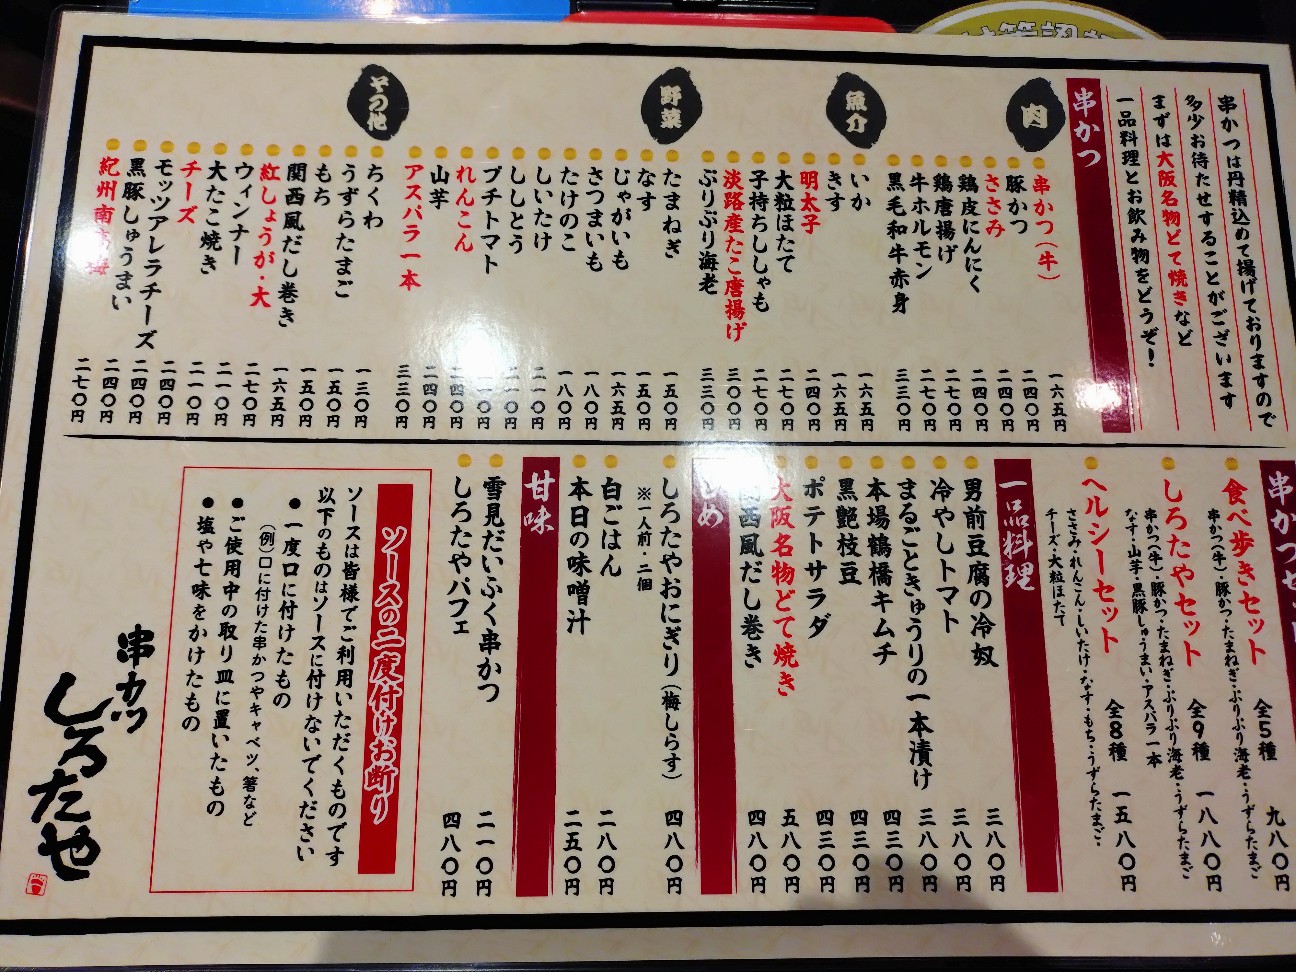 串かつは丹精込めて揚げておりますので
多少お待たせすることがございます
まずは大阪名物どて焼きなど
一品料理とお飲み物をどうぞ!
串かつ
肉
串かつ(牛) 一六五円
豚かつ 二四〇円
ささみ 二四〇円
鶏皮にんにく 二四〇円
鶏唐揚げ 二七〇円
牛ホルモン 二七〇円
黒毛和牛赤身 三三〇円
魚介
いか 一六五円
きす 一六五円
明太子 二四〇円
大粒ほたて 二七〇円
子持ちししゃも 二七〇円
淡路産たこ唐揚げ 三〇〇円
ぷりぷり海老 三三〇円
野菜
たまねぎ 一五〇円
なす 一五〇円
じゃがいも 一六五円
さつまいも 一八〇円
たけのこ 一八〇円
しいたけ 二一〇円
ししとう 二一〇円
プチトマト
れんこん 二四〇円
山芋 二四〇円
アスパラ一本 三三〇円
その他
ちくわ 一三〇円
うずらたまご 一五〇円
もち 一五〇円
関西風だし巻き 一六五円
紅しょうが・大 二七〇円
ウィンナー 二一〇円
大たこ焼き 二一〇円
チーズ 二四〇円
モッツアレラチーズ 二四〇円
黒豚しゅうまい 二四〇円
紀州南高梅 二七〇円
串かつセット
食べ歩きセット 全5種 九八〇円
串かつ(牛)・豚かつ・たまねぎ・ぷりぷり海老・うずらたまご
しろたやセット 全9種 一八八〇円
串かつ(牛)・豚かつ・たまねぎ・ぷりぷり海老・うずらたまご
なす・山芋・黒豚しゅうまい・アスパラ一本
ヘルシーセット 全8種 一五八〇円
ささみ・れんこん・しいたけ・なす・もち・うずらたまご・
チーズ・大粒ほたて
一品料理
男前豆腐の冷奴 三八〇円
冷やしトマト 三八〇円
まるごときゅうりの一本漬け 三八〇円
本場鶴橋キムチ 四三〇円
黒艶枝豆 四三〇円
ポテトサラダ 四三〇円
大阪名物どて焼き 五八〇円
関西風だし巻き 四八〇円
しめ
しろたやおにぎり(梅しらす) 四八〇円
※一人前・二個
白ごはん 二八〇円
本日の味噌汁 二五〇円
甘味
雪見だいふく串かつ 二一〇円
しろたやパフェ 四八〇円
ソースの二度付けお断り
ソースは皆様でご利用いただくものです
以下のものはソースに付けないでください
●一度口に付けたもの
(例)口に付けた串かつやキャベツ、箸など
●ご使用中の取り皿に置いたもの
●塩や七味をかけたもの
串カツ
しろたや